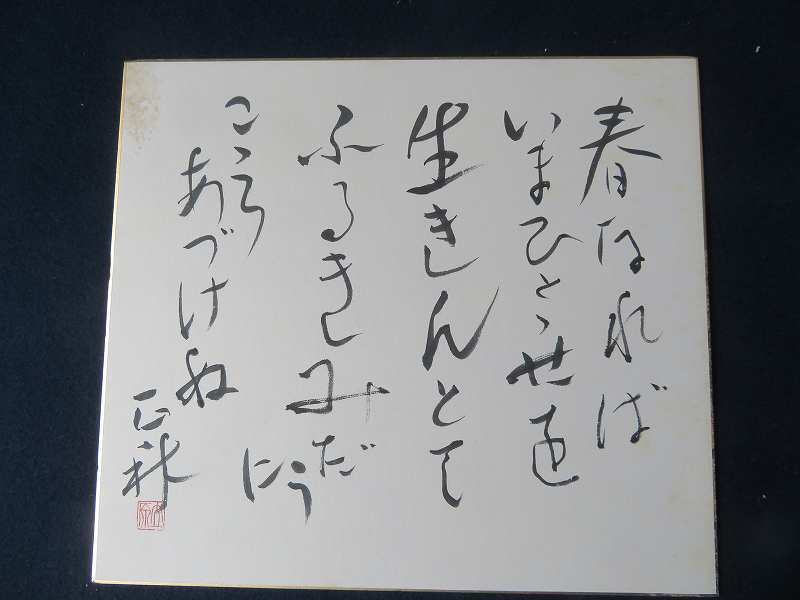 春なれば
いまひとゝせを
生きんとて
ふるきみだうに
こゝろ
あづけぬ